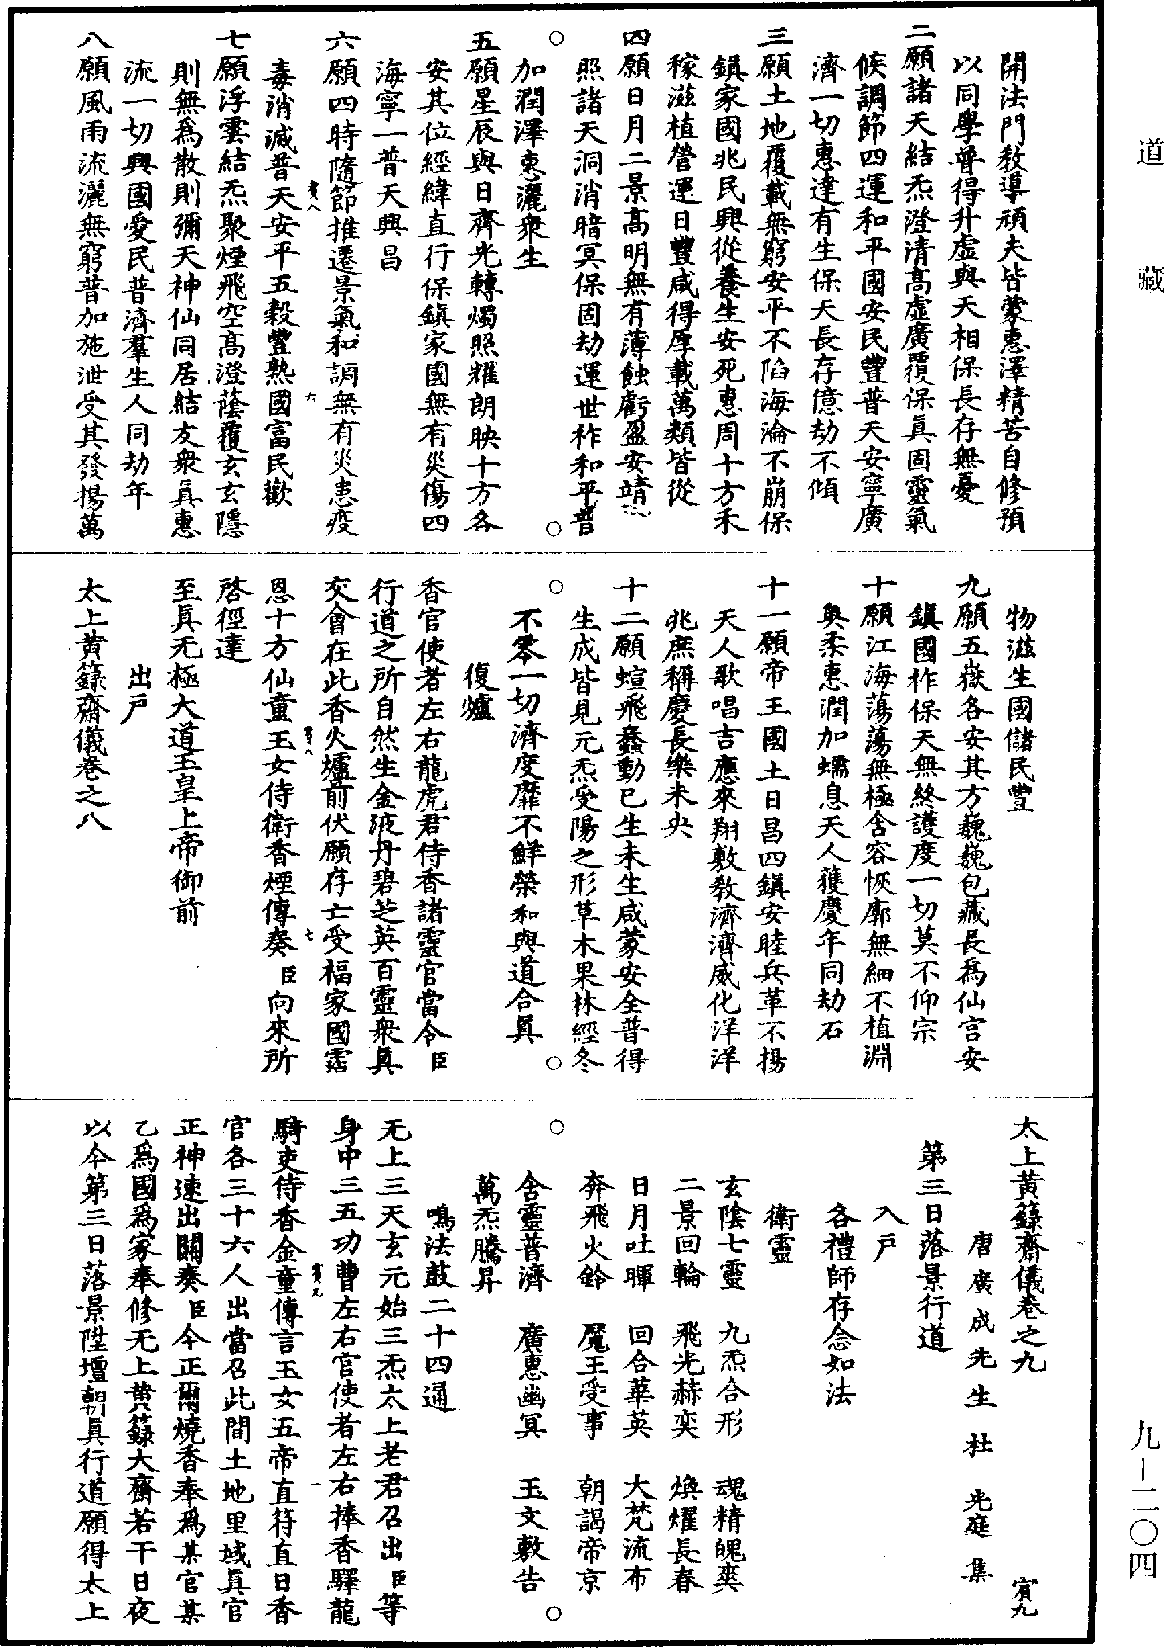 道藏
開法門教導頑夫皆蒙惠澤精苦自修預
以同學普得升虛與天相保長存無憂
二願諸天結炁澄清高虛廣覆保真固靈氣
候調節四運和平國安民豐普天安寧廣
濟一切惠達有生保天長存億劫不傾
三願土地覆載無窮安平不陷海淪不崩保
鎮家國兆民興從養生安死惠周十方禾
稼滋植營運日豐咸得厚載萬類皆從
四願日月二景高明無有薄蝕虧盈安靖
照諸天洞消暗冥保固劫運世祚和平普
加潤澤惠灑衆生
五願星辰與日齊光轉燭照耀朗映十方各
安其位經緯直行保鎮家國無有災傷四
海寧一普天興昌
六願四時隨節推遷景氣和調無有災患疫
毒消滅普天安平五穀豐熟國富民歡
七願浮雲結炁聚煙飛空高澄蔭覆玄玄隱
則無為散則彌天神仙同居結友衆真惠
流一切興國愛民普濟羣生人同劫年
八願風雨流灑無窮普加施泄受其發揚萬
物滋生國儲民豐
九願五嶽各安其方巍巍包藏長為仙宮安
鎮國祚保天無終護度一切莫不仰宗
十願江海蕩蕩無極含容恢廓無細不植淵
奧柔惠潤加蠕息天人獲慶年同劫石
十一願帝王國土日昌四鎮安睦兵革不揚
天人歌唱吉應來翔敷教濟濟威化洋洋
兆庶稱慶長樂未央
十二願蝖飛蠢動已生未生咸蒙安全普得
生成皆見元炁受陽之形草木果林經冬
不零一切濟度靡不鮮榮和與道合真
復爐
香官使者左右龍虎君侍香諸靈官當令臣
行道之所自然生金液丹碧芝英百靈衆真
交會在此香火爐前伏願存亡受福家國霑
恩十方仙童玉女侍衛香煙傳奏臣向來所
啓徑達
至真无極大道玉皇上帝御前
出戶
太上黃籙齋儀卷之八
太上黃籙齋儀卷之九
賓九
唐廣成先生杜光庭集
第三日落景行道
入戶
各禮師存念如法
衛靈
玄陰七靈 九炁合形 魂精魄爽
二景回輪 飛光赫奕 煥耀長春
日月吐暉 回合華英 大梵流布
奔飛火鈴 魔王受事 朝謁帝京
含靈普濟 廣惠幽冥 玉文敷告
萬炁騰昇
鳴法鼓二十四通
无上三天玄元始三炁太上老君召出臣等
身中三五功曹左右官使者左右捧香驛龍
騎吏侍香金童傳言玉女五帝直符直日香
官各三十六人出當召此間土地里域真官
正神速出關奏臣今正爾燒香奉為某官某
乙為國為家奉修无上黃籙大齋若干日夜
以今第三日落景陞壇朝真行道願得太上
九—二〇四